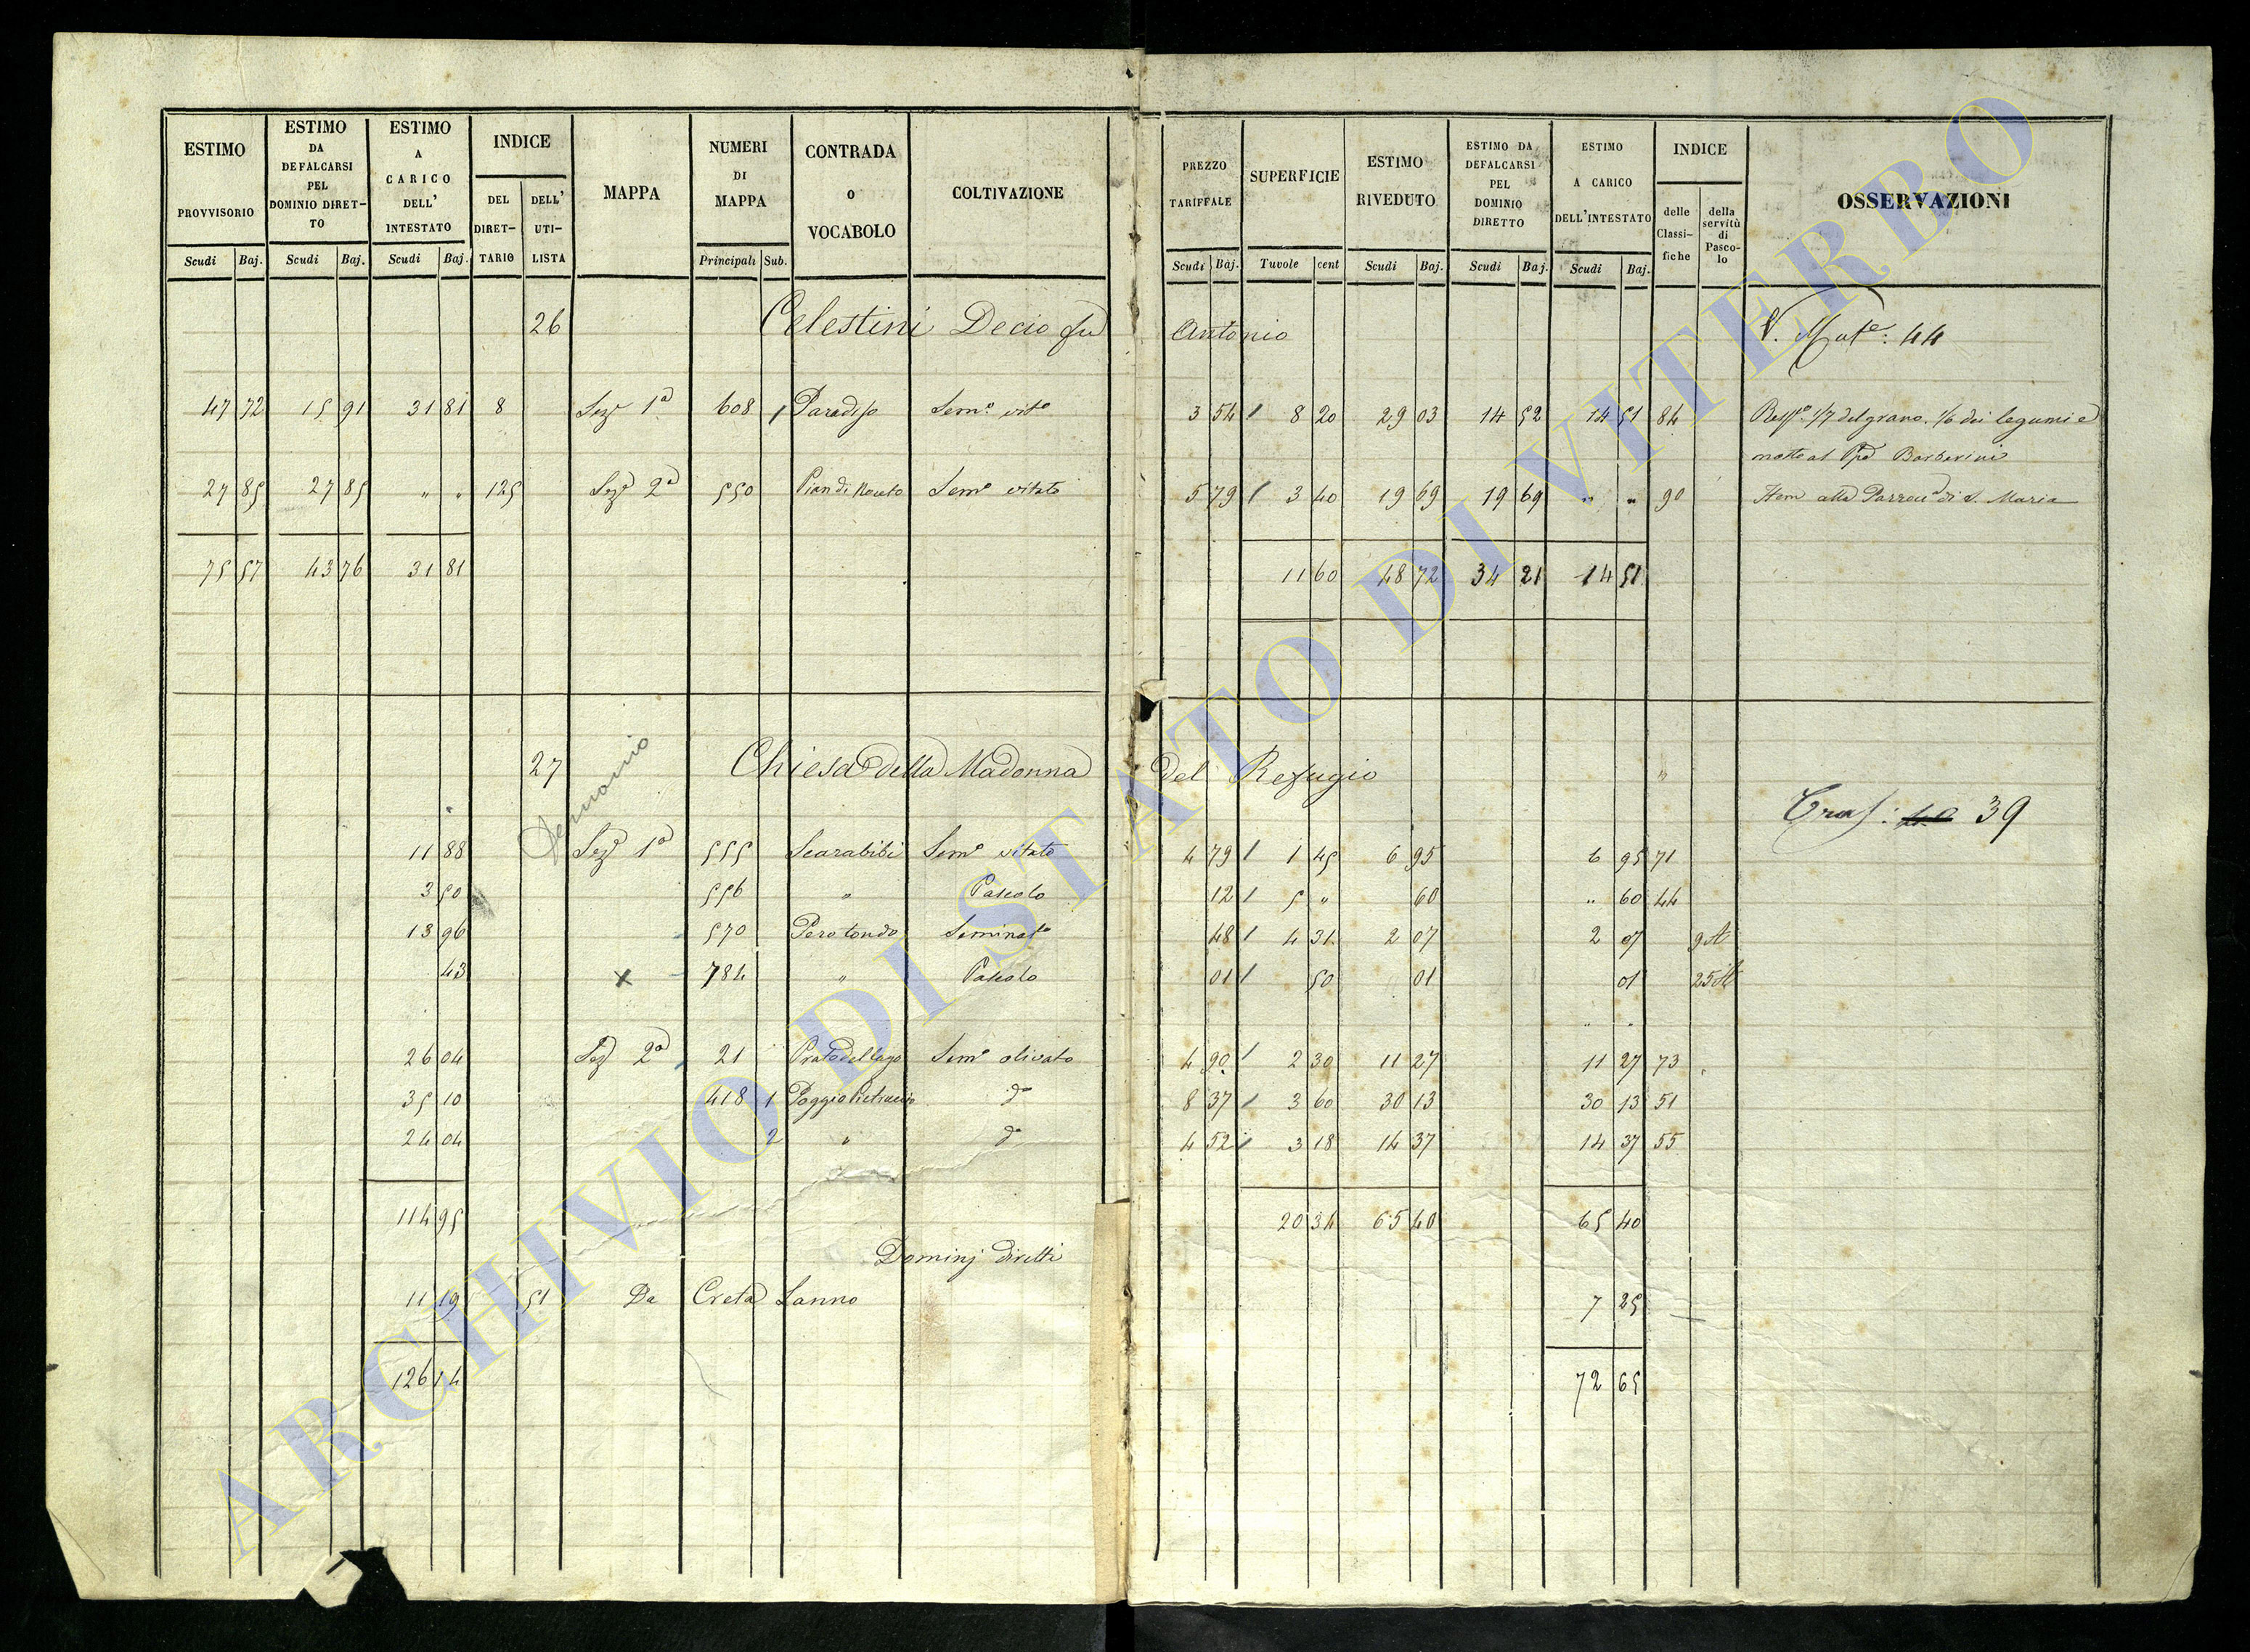 ESTIMO PROVVISORIO | ESTIMO DA DEFALCARSI PEL DOMINIO DIRET-TO | ESTIMO A CARICO DELL' INTESTATO | INDICE DEL DIRET-TARIO | DELL' UTI-LISTA | MAPPA | NUMERI DI MAPPA | CONTRADA O VOCABOLO | COLTIVAZIONE | PREZZO TARIFFALE | SUPERFICIE | ESTIMO RIVEDUTO | ESTIMO DA DEFALCARSI PEL DOMINIO DIRETTO | ESTIMO A CARICO DELL'INTESTATO | INDICE delle Classi-fiche | della servitù di Pasco-lo | OSSERVAZIONI
Scudi Baj. Scudi Baj. Scudi Baj. Principali Sub. Scudi Baj. Tavole cent Scudi Baj. Scudi Baj. Scudi Baj.
26 Celestini Decio fu Antonio V. Mut.e: 44
47 72 15 91 31 81 8 Sez.e 1a 608 1 Paradiso Sem.o vit.o 3 54 8 20 29 03 14 52 14 51 84 1/7 del grano. 1/6 dei legumi e
al Barberini
27 85 27 85 " " 125 Sez.e 2a 550 Pian di Sem.o vitato 5 79 3 40 19 69 19 69 " " 90 Item alla Parroc.a di S. Maria
75 57 43 76 31 81 11 60 48 72 34 21 14 51
27 Chiesa della Madonna del Refugio "
Demanio
Tras: 39
11 88 Sez.e 1a 555 Scarabibi Sem.o vitato 4 79 1 45 6 95 6 95 71
3 50 556 " Pascolo 12 5 " 60 " 60 44
13 96 570 Perotondo Seminat.o 48 4 31 2 07 2 07 9 A
43 x 784 " Pascolo 01 50 01 01 25 A
" "
26 04 Sez 2a 21 Prato del lago Sem.o olivato 4 90 2 30 11 27 11 27 73
35 10 418 1 Poggio Pietraccio d.o 8 37 3 60 30 13 30 13 51
24 04 2 " d.o 4 52 3 18 14 37 14 37 55
114 95 20 34 65 40 65 40
Dominj diretti
11 19 51 Da Creta Sanno 7 25
126 14 72 65
ARCHIVIO DI STATO DI VITERBO